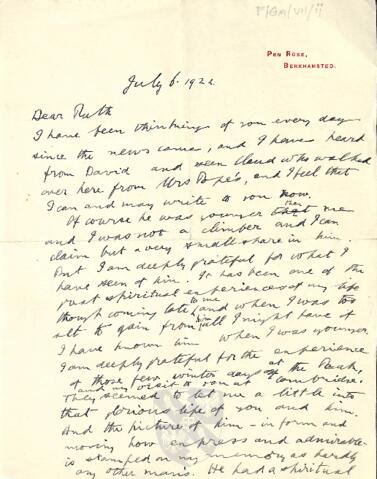 F/GM/VII/ii
PEN ROSE,
BERKHAMSTED.
July 6. 1922
Dear Ruth
I have been thinking of you every day
since the news came, and I have heard
from David and seen Claud who walked
over here from Mrs Pope's, and I feel that
I can and may write to you now.
Of course he was younger than me
and I was not a climber and I can
claim but a very small share in him.
But I am deeply grateful for what I
have seen of him. It has been one of the
spiritual experiences of my life
though coming late to me and when I was too
old to gain from him all I might have if
I have known him when I was younger.
I am deeply grateful for the experience
of those few winter days at the Peak,
and my visit to you at Cambridge.
They seemed to let me a little into
that glorious life of you and him.
And the picture of him - in form and
moving how express and admirable -
is stamped on my memory as hardly
any other man's. He had a spiritual